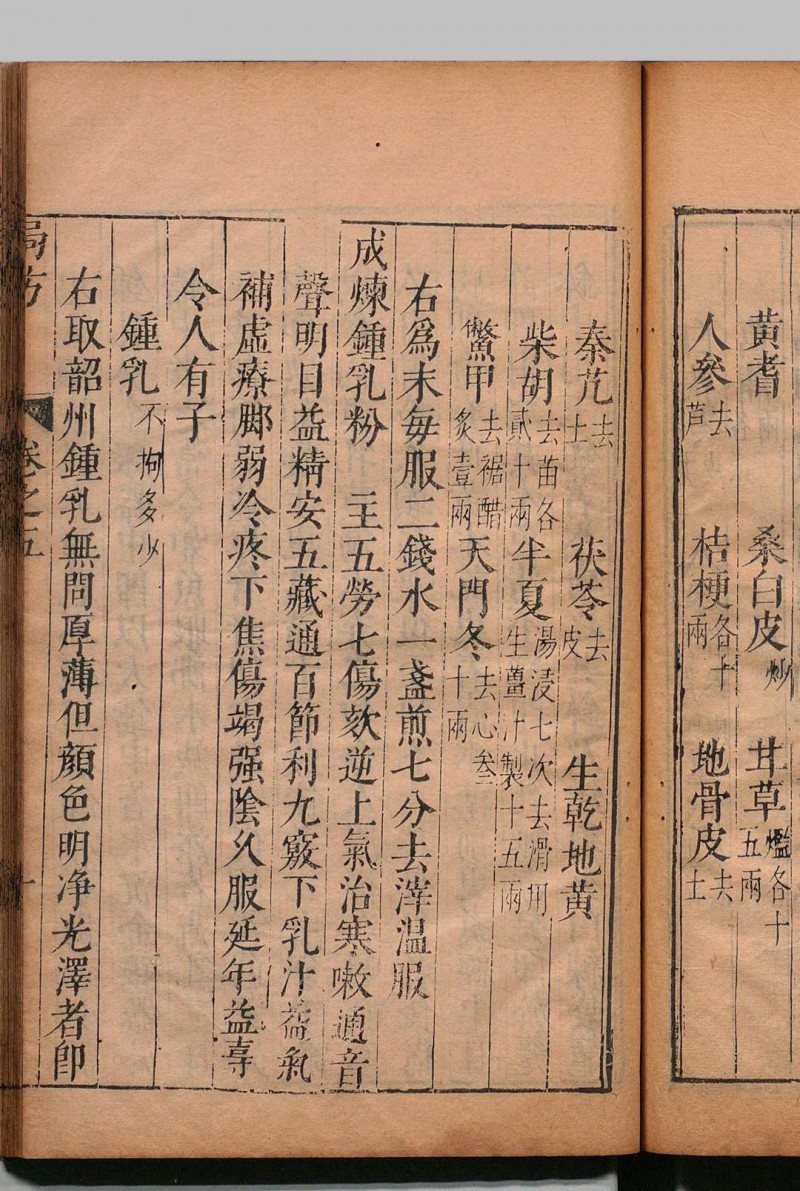 黄耆　桑白皮炒　甘草爁各十五兩
人參去芦　桔梗各十兩　地骨皮去土
秦艽去土　茯苓去皮　生乾地黄
柴胡去苗各貳十兩　半夏湯浸七次去滑用生薑汁製十五兩
鱉甲去裾醋炙壹兩　天門冬去心叁十兩
右爲末每服二錢水一盞煎七分去滓温服
成煉鍾乳粉　主五勞七傷欬逆上氣治寒嗽通音
聲明目益精安五藏通百節利九竅下乳汁益氣
補虛療脚弱冷疼下焦傷竭强陰久服延年益壽
令人有子
鍾乳不拘多少
右取韶州鍾乳無問厚薄但顏色明净光澤者即
局方　卷之五　十